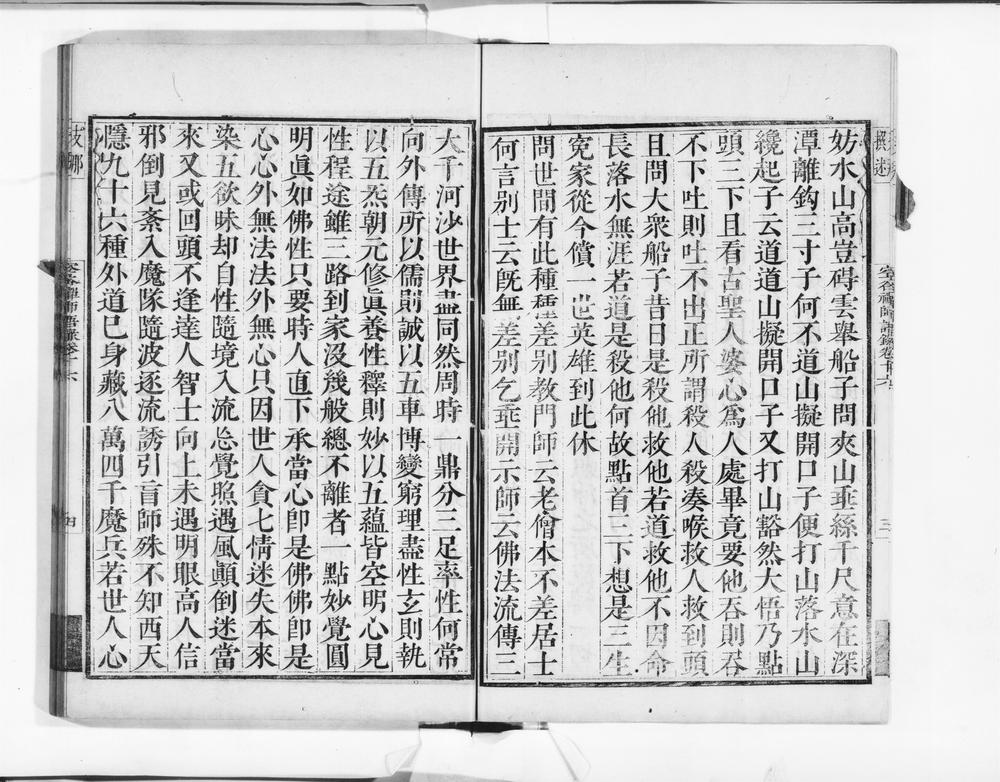 妨水山高豈碍雲舉船子問夾山垂絲千尺意在深
潭離鈎三寸子何不道山擬開口子便打山落水山
纔起子云道道山擬開口子又打山豁然大悟乃點
頭三下且看古聖人婆心為人處畢竟要他吞則吞
不下吐則吐不出正所謂殺人殺奏喉救人救到頭
且問大衆船子昔日是殺他救他若道救他不因命
長落水無涯若道是殺他何故點首三下想是三生
寃家從今償一世英雄到此休
問世間有此種種差別教門師云老僧本不差居士
何言別士云旣無差別乞垂開示師云佛法流傳三
大千河沙世界盡同然周時一鼎分三足率性何常
向外傳所以儒則誠以五車博變窮理盡性玄則執
以五炁朝元修眞養性釋則妙以五蘊皆空明心見
性程途雖三路到家沒幾般總不離者一點妙覺圓
明眞如佛性只要時人直下承當心卽是佛佛卽是
心心外無法法外無心只因世人貪七情迷失本來
染五欲昧却自性隨境入流忘覺照遇風顚倒迷當
來又或回頭不逢達人智士向上未遇明眼高人信
邪倒見紊入魔隊隨波逐流誘引盲師殊不知西天
隱九十六種外道已身藏八萬四千魔兵若世人心